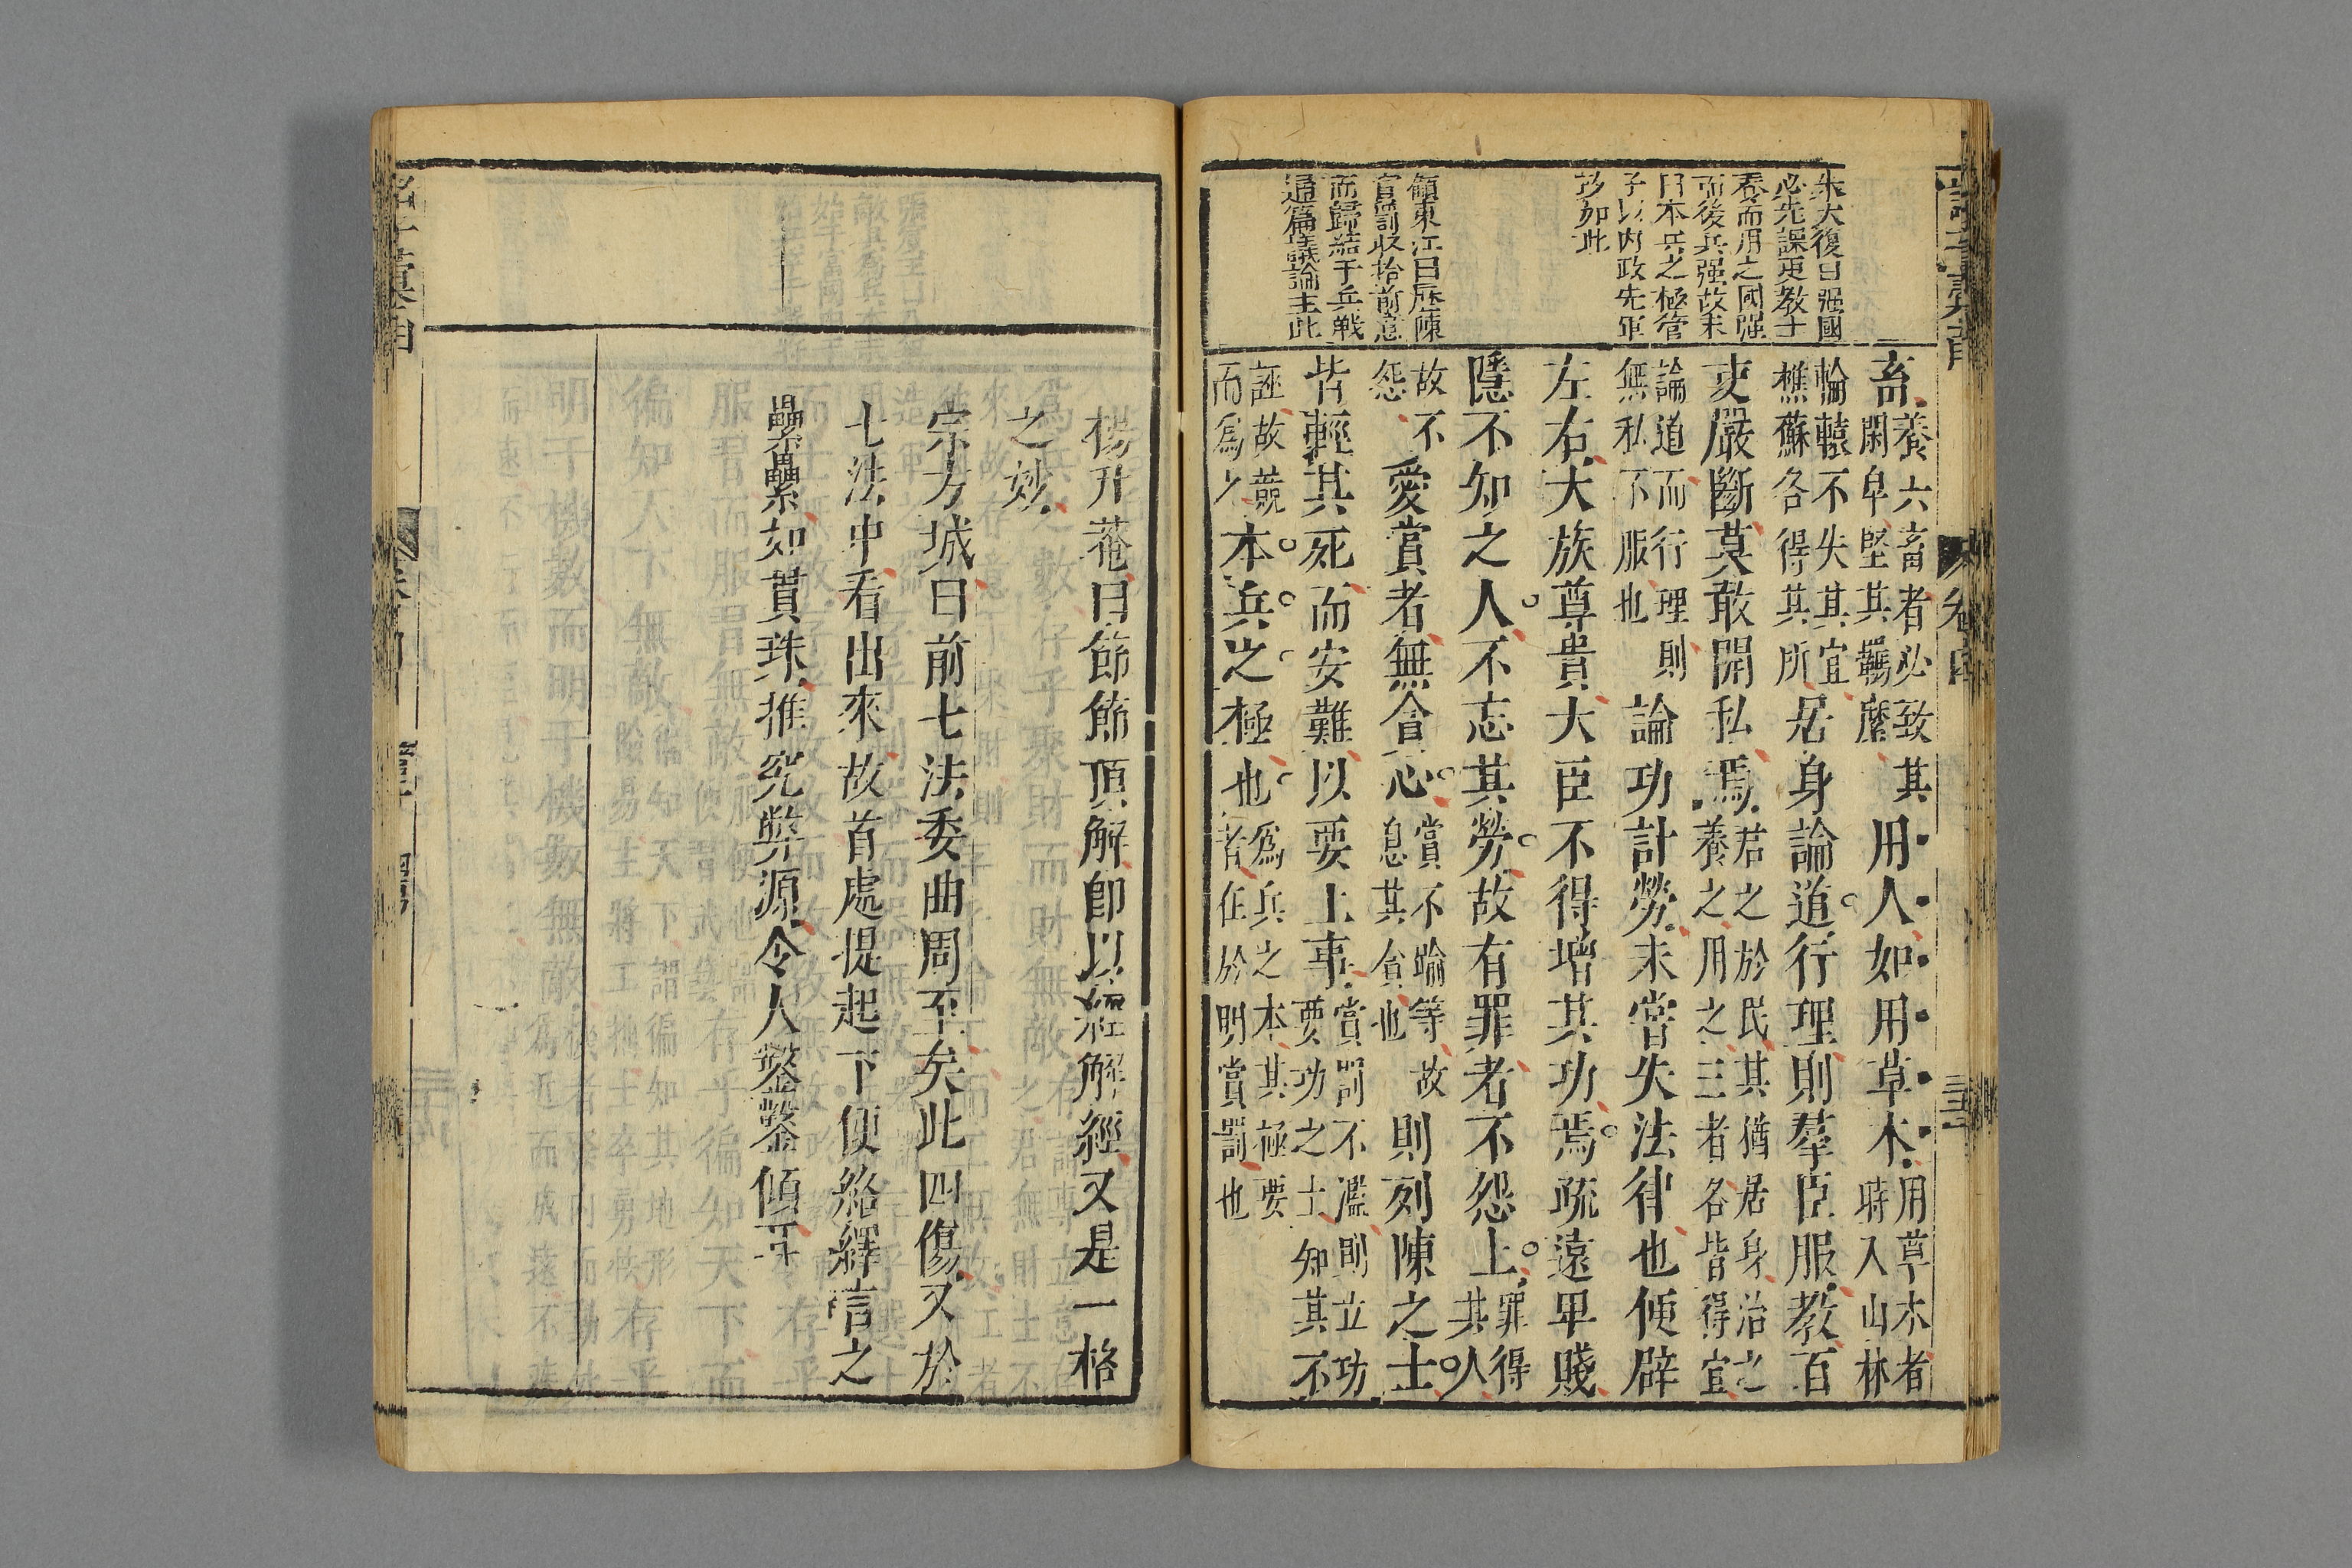 朱大復曰強國
必先課吏教士
養而用之國強
而後兵强故末
曰本兵之極管
子以內政先軍
政如此
顧東江曰歷陳
賞罰收拾前意
而歸結于兵戰
通篇議論主此
畜養六畜者必致其
閑皁堅其羈縻用人如用草木用草木者
時入山林
輪轅不失其宜
樵蘇各得其所居身論道行理則羣臣服教百
吏嚴斷莫敢開私焉君之於民其猶居身治之
養之用之三者各皆得宜
論道而行理則
無私不服也論功計勞未嘗失法律也便辟
左右大族尊貴大臣不得增其功焉疏遠卑賤
隱不知之人不忘其勞故有罪者不怨上罪得
其人
故不
怨愛賞者無貪心賞不踰等故
息其貪也則列陳之士
皆輕其死而安難以要上事賞罰不濫則立功
要功之士知其不
誣故競
而爲之本兵之極也爲兵之本其極要
者在於明賞罰也
卷四
楊升菴曰節節頂解卽以經解經又是一格
之妙
宗方城曰前七法委曲周至矣此四傷又於
七法中看出來故首處提起下便絡繹言之
纍纍如貫珠推究弊源令人鑿鑿傾耳